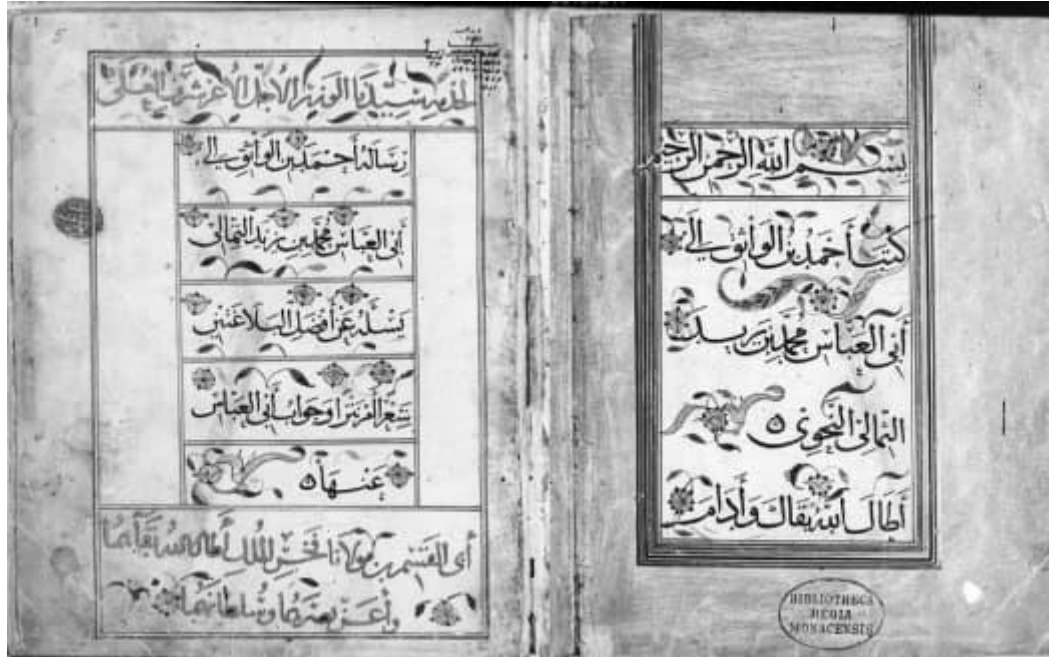 بسم الله الرحمن الرحيم
كتب أحمد بن الواثق إلى
أبي العباس محمد بن يزيد
الثمالي النحوي ه
أطال الله بقاك وأدام
BIBLIOTHECA
REGIA
MONACENSIS
لخدمة سيدنا الوزير الأجل الأعز شرف المعالي
رسالة أحمد بن الواثق إلى
أبي العباس محمد بن يزيد الثمالي
يسله عن أفضل البلاغتين
شعرا أم نثرا وجواب أبي العباس
عنها ه
أبي القسم بن مولانا فخر الملك أطال الله بقاهما
وأعز نصرهما وسلطانهما